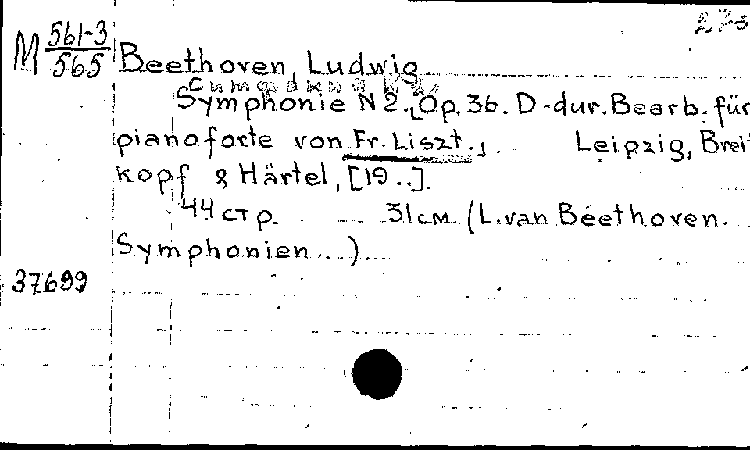 M 561-3
565
Beethoven, Ludwig
Symphonie N 2. Op. 36. D-dur. Bearb. für
pianoforte von Fr. Liszt., Leipzig, Breit
kopf & Härtel, [19..].
44 стр. 31см (L. van Beethoven.
Symphonien...)
37699